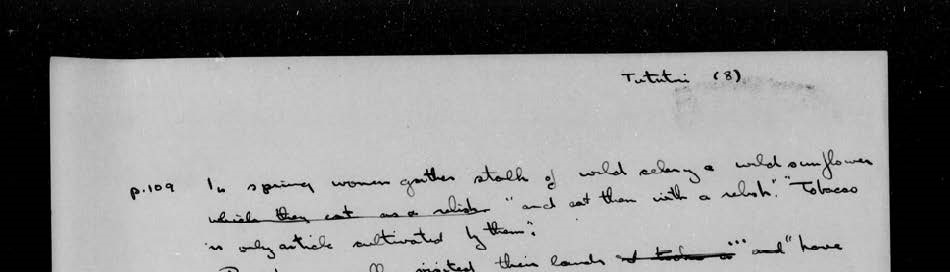 Tututni (8)
p.109 In spring women gather stalk of wild celery & wild sunflower
which they eat as a relish "and eat them with a relish". "Tobacco
is only article cultivated by them";
visited their lands "and" have